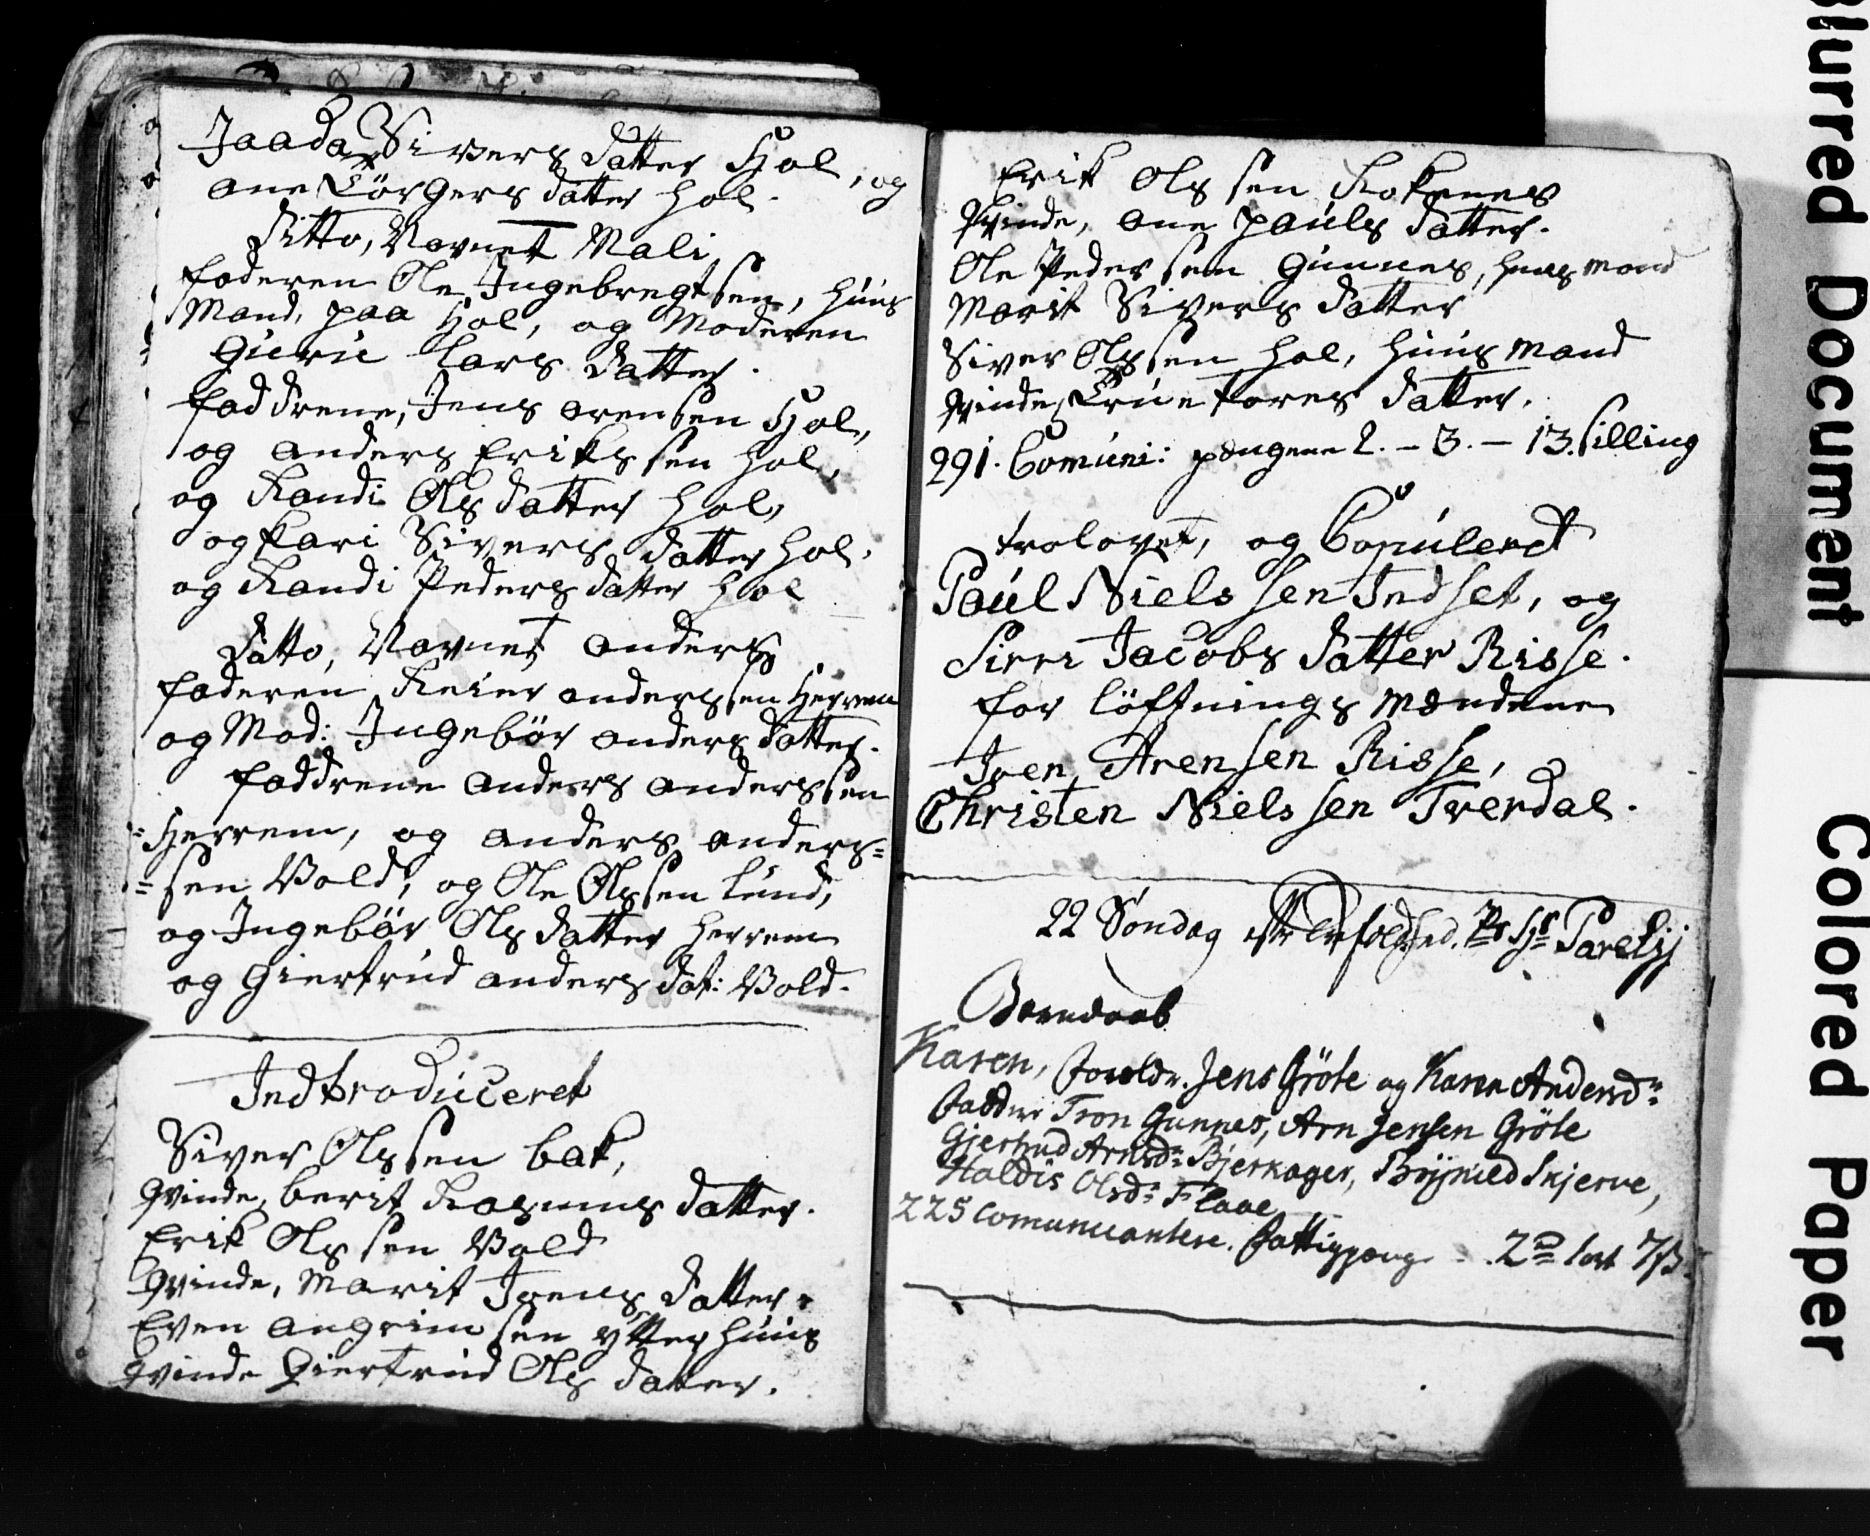 Jaada Sivers datter Hol, og
ane Börgers datter Hol.
Ditto, Navnet Mali,
faderen Ole Ingebregtsen, huus
Mand, paa Hol, og Moderen
Guru Lars datter.
faddrene, Jens arensen Hol,
og anders Erikssen Hol,
og Randi Ols datter Hol,
og Kari Sivers datter Hol,
og Randi Peders datter Hol
Ditto, Navnet anders
faderen Reier anderssen Herrem
og Mod: Ingebör anders datter.
faddrene anders anderssen
Herrem, og anders anders=
=sen Vold, og Ole Olssen Lund,
og Ingebör Ols datter Herrem
og Giertrud anders dat: Vold.
Indtroduceret
Siver Olssen bak,
qvinde, berit Rasmus datter.
Erik Olssen Vold
qvinde, Marit Ivens datter.
Even angrimsen ytterhuus
qvinde Giertrud Ols datter.
Erik Olssen
qvinde, ane pauls datter.
Ole Pedersen Gunnes, huusmand
Marit Sivers datter
Siver Olssen Hol, huusmand
qvinde, Tores datter.
291. Comuni: pengene 2. - 3. - 13. silling
trolovet, og Copuleret
Paul Nielssen Indset, og
Sirri Jacobs datter Risse.
for löftnings mændene
Iven Arensen Risse,
Christen Nielssen Tverdal.
22 Söndag
Barnedaab
Karen, Foreldr. Jens Gröte og Karen Andersdr:
Faddre Tron Gunnes, Arn Jensen Gröte
Gjertrud Arnsdr: Bjerkager, Brynild Skjerve,
Haldis Olsdr: Flaae
225 Comunicantere. Fattigpenge 2 ort 7 β.
Blurred Document
Colored Paper